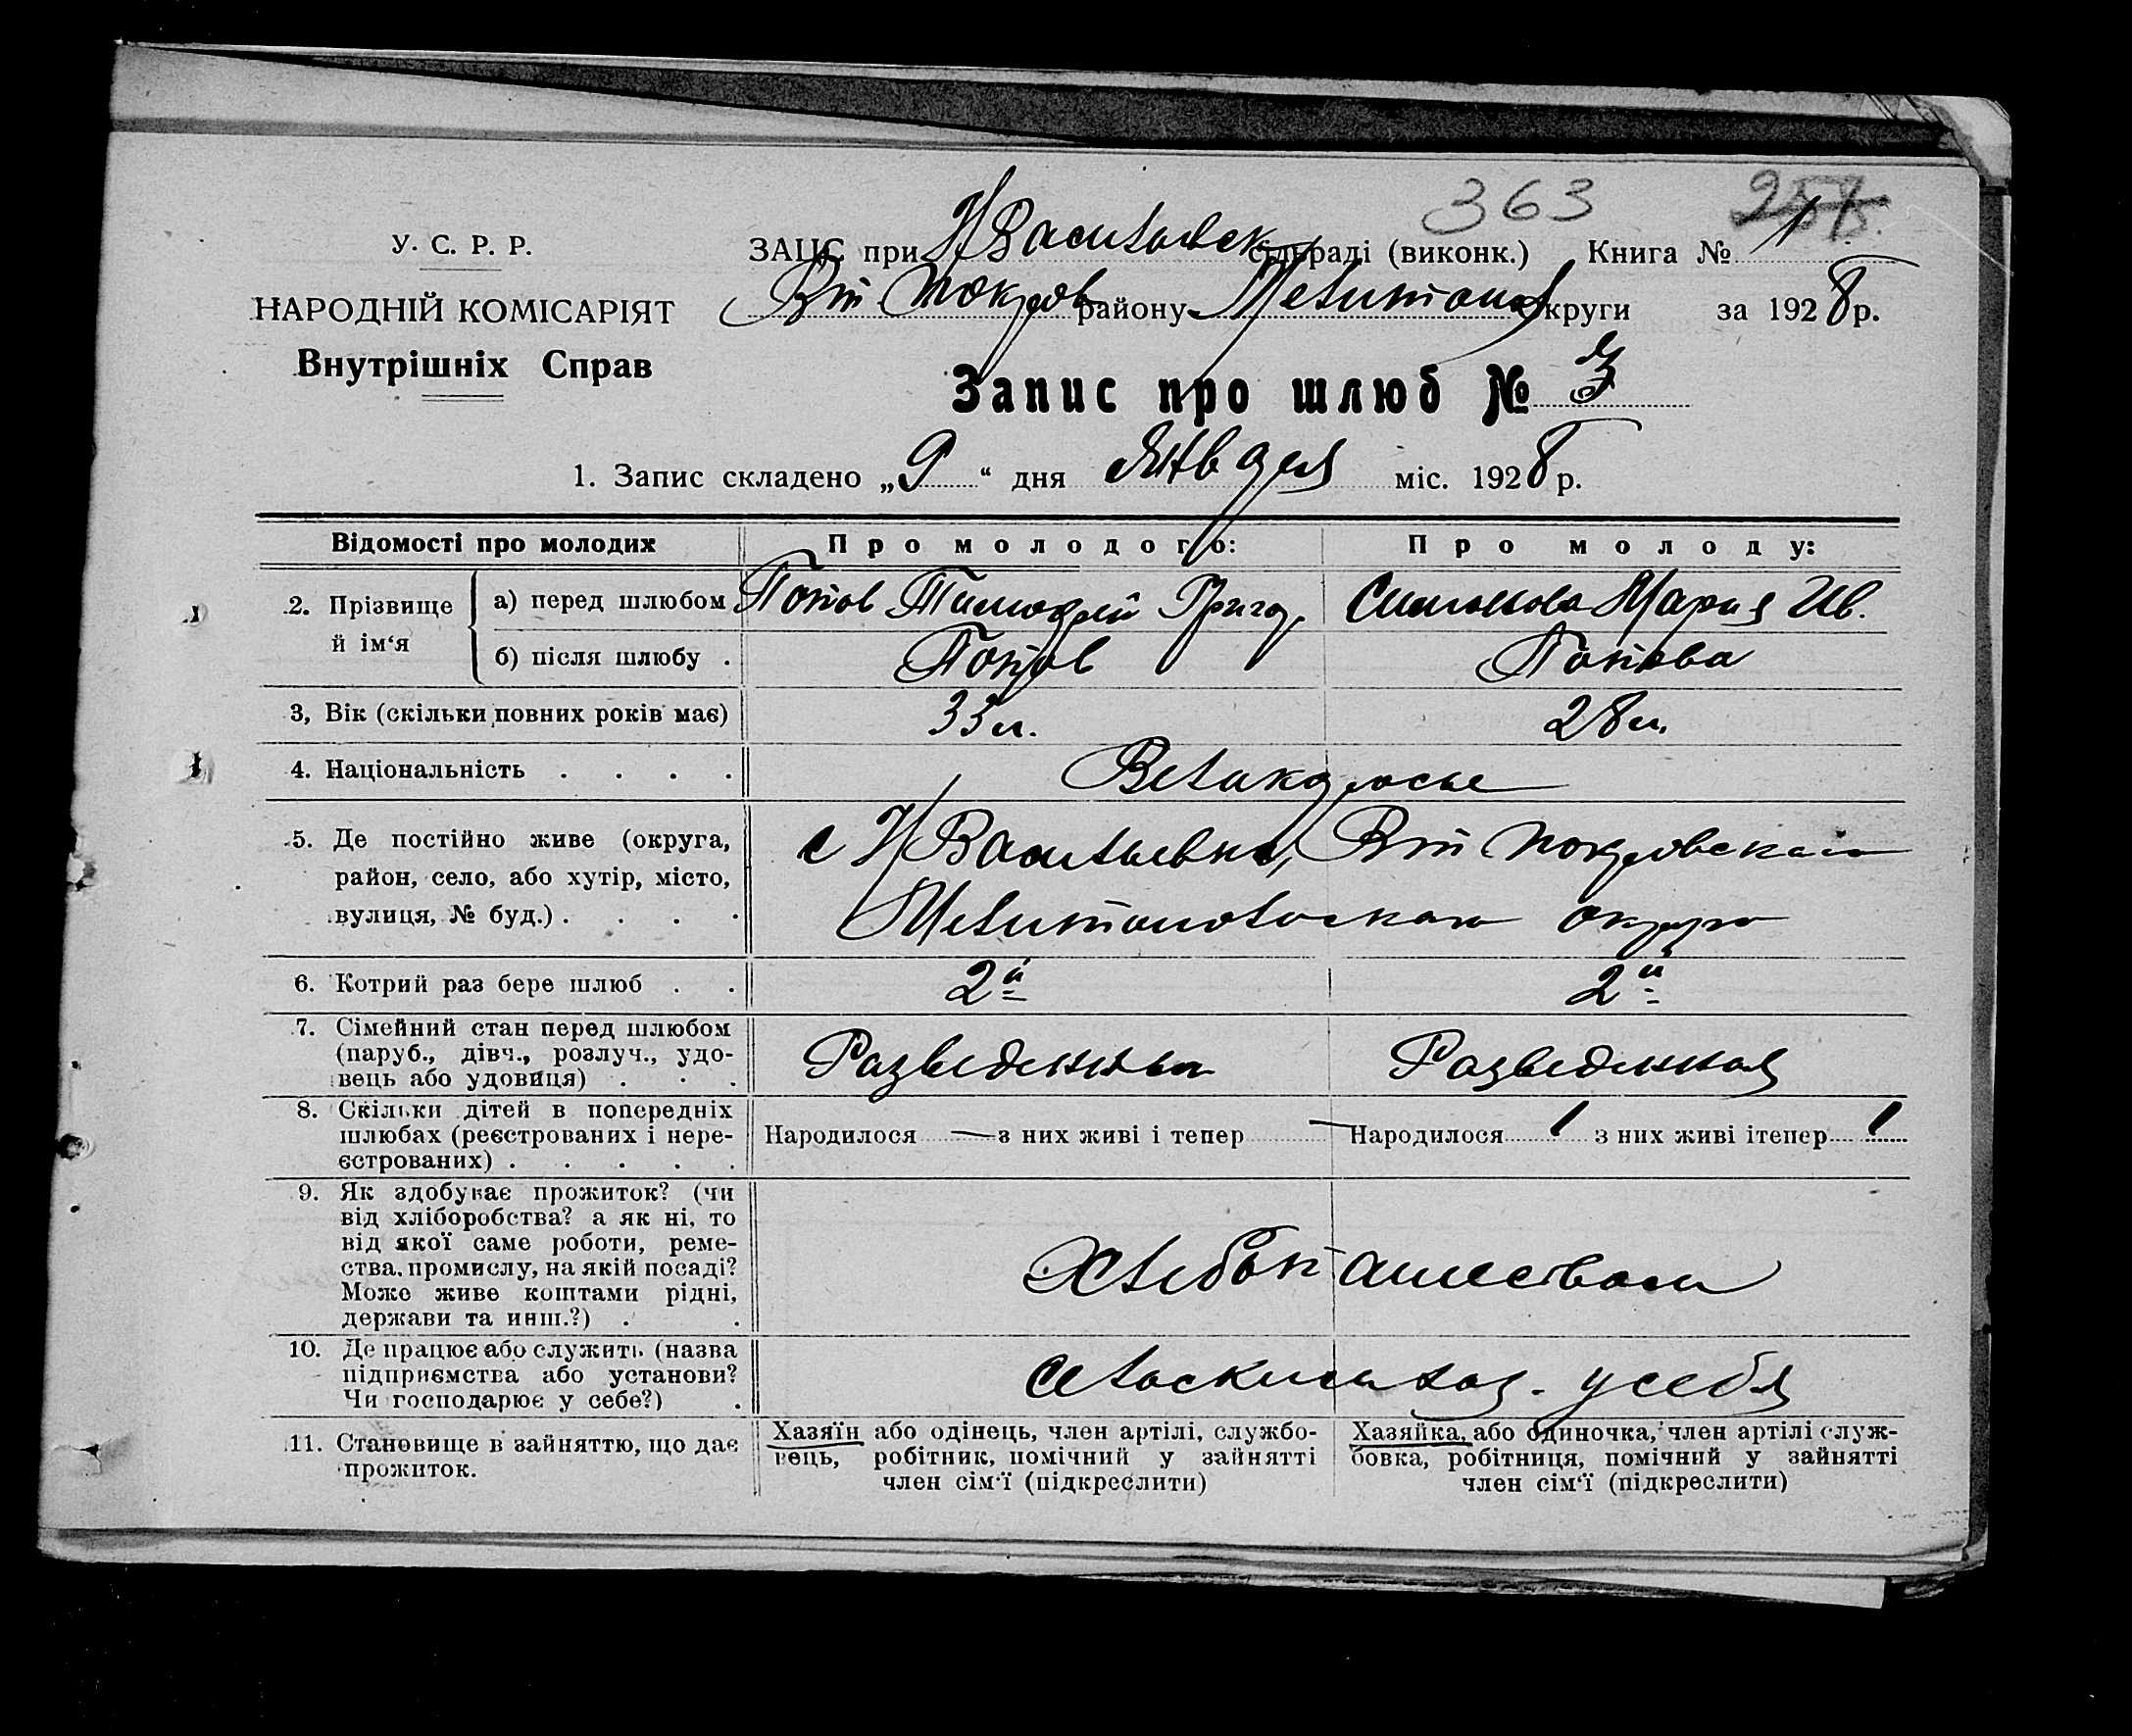 363
У. С. Р. Р.
ЗАЦС при Н Васильевск сільраді (виконк.) Книга № 1
НАРОДНІЙ КОМІСАРІЯТ
Вт. Покров району Мелитоп округи за 1928 р.
Внутрішніх Справ
Запис про шлюб № 3
1. Запис складено „9“ дня Января міс. 1928 р.
Відомості про молодих Про молодого: Про молоду:
2. Прізвище й ім‘я а) перед шлюбом Попов Тимофей Григор. Симонова Мария Ив.
б) після шлюбу . Попов Попова
3, Вік (скільки повних років має) 33 л. 28 л.
4. Національність . . . . Великоросы
5. Де постійно живе (округа, с Н Васильевка, Вт Покровского
район, село, або хутір, місто,
вулиця, № буд.) . . . . Мелитопольского округа
6. Котрий раз бере шлюб . . 2й 2й
7. Сімейний стан перед шлюбом
(паруб., дівч., розлуч., удо- Разведенный Разведенная
вець або удовиця) . . .
8. Скільки дітей в попередніх
шлюбах (реєстрованих і нере- Народилося — з них живі і тепер — Народилося 1 з них живі ітепер 1
єстрованих) . . . . .
9. Як здобуває прожиток? (чи
від хліборобства? а як ні, то
від якої саме роботи, реме-
ства, промислу, на якій посаді? Хлебопашеством
Може живе коштами рідні,
держави та инш.?) . .
10. Де працює або служить (назва
підприємства або установи? Сельским хоз. у себя
Чи господарює у себе?) .
11. Становище в зайняттю, що дає Хазяїн або одінець, член артілі, службо- Хазяйка, або одиночка, член артілі служ-
прожиток. вець, робітник, помічний у зайнятті бовка, робітниця, помічний у зайнятті
член сім‘ї (підкреслити) член сім‘ї (підкреслити)